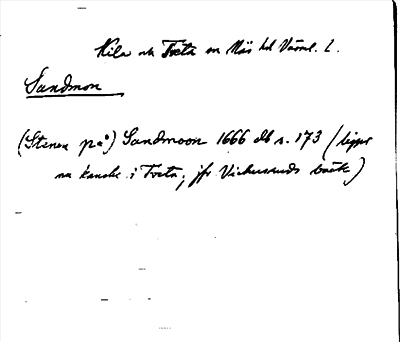 Kila o Tveta sn Näs hd Värml. l.
Sandmon
(Stenen på) Sandmoon 1666 db s. 173 (ligger
nu kanske i Tveta, jfr Vickersunds bäck)